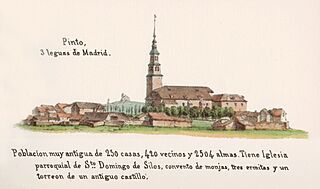 Pinto,
3 leguas de Madrid.
Poblacion muy antigua de 250 casas, 420 vecinos y 2304 almas. Tiene Iglesia
parroquial de Sto. Domingo de Silos, convento de monjas, tres ermitas y un
torreon de un antiguo castillo.